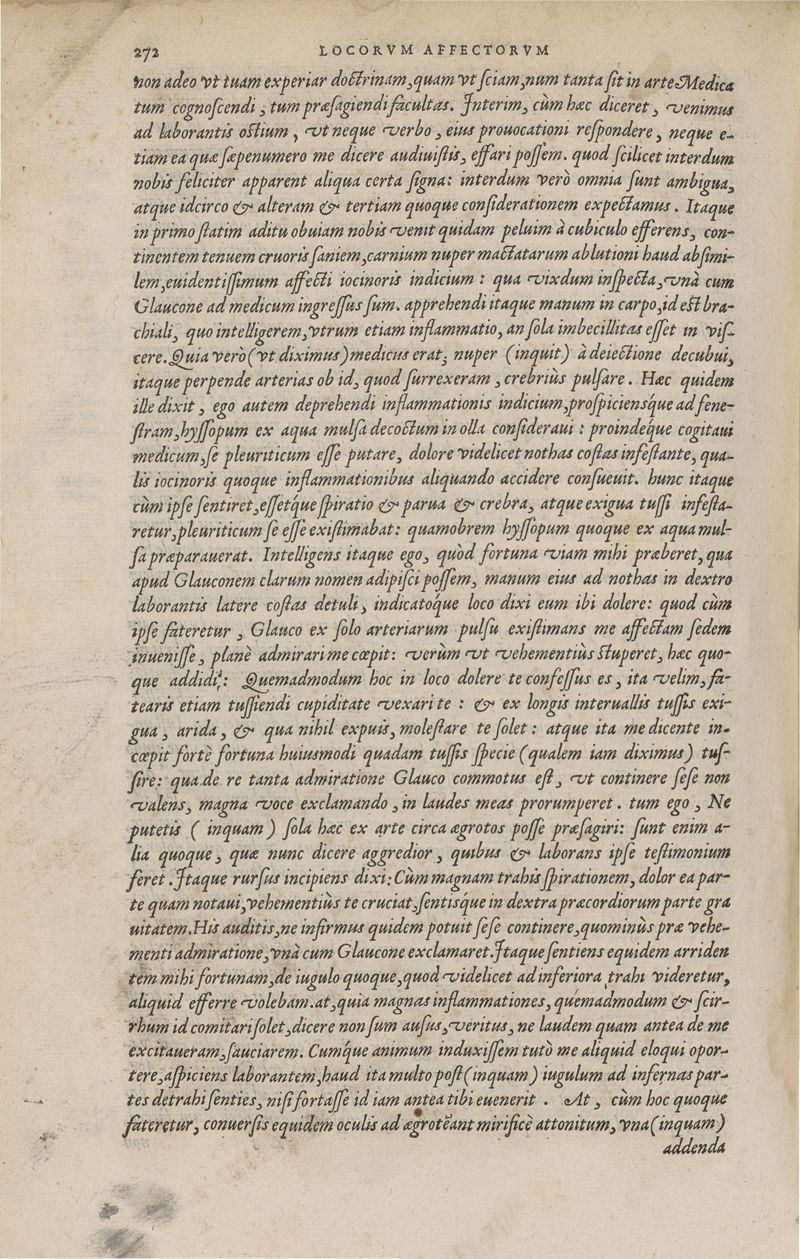 272 LOCORVM AFFECTORVM
non adeo vt tuam experiar doctrinam,quam vt ſciam,num tanta ſit in arte Medica
tum cognoſcendi , tum præſagiendi facultas. Interim, cùm hæc diceret , venimus
ad laborantis oſtium , vt neque verbo , eius prouocationi reſpondere , neque e-
tiam ea quæ ſæpenumero me dicere audiuiſtis, effari poſſem. quod ſcilicet interdum
nobis feliciter apparent aliqua certa ſigna: interdum verò omnia ſunt ambigua,
atque idcirco & alteram & tertiam quoque conſiderationem expectamus . Itaque
in primo ſtatim aditu obuiam nobis venit quidam peluim à cubiculo efferens, con-
tinentem tenuem cruoris ſaniem,carnium nuper mactatarum ablutioni haud abſimi-
lem,euidentiſſimum affecti iocinoris indicium : qua vixdum inſpecta,vnà cum
Glaucone ad medicum ingreſſus ſum. apprehendi itaque manum in carpo,id eſt bra-
chiali, quo intelligerem,vtrum etiam inflammatio, an ſola imbecillitas eſſet in viſ-
cere. Quia verò(vt diximus)medicus erat; nuper (inquit) à deiectione decubui,
itaque perpende arterias ob id, quod ſurrexeram , crebriùs pulſare . Hæc quidem
ille dixit , ego autem deprehendi inflammationis indicium,proſpiciensq́ue ad fene-
ſtram,hyſſopum ex aqua mulſa decoctum in olla conſideraui : proindeq́ue cogitaui
medicum,ſe pleuriticum eſſe putare, dolore videlicet nothas coſtas infeſtante, qua-
lis iocinoris quoque inflammationibus aliquando accidere conſueuit. hunc itaque
cùm ipſe ſentiret,eſſetq́ue ſpiratio & parua & crebra, atque exigua tuſſi infeſta-
retur,pleuriticum ſe eſſe exiſtimabat: quamobrem hyſſopum quoque ex aqua mul-
ſa præparauerat. Intelligens itaque ego, quòd fortuna viam mihi præberet, qua
apud Glauconem clarum nomen adipiſci poſſem, manum eius ad nothas in dextro
laborantis latere coſtas detuli, indicatoq́ue loco dixi eum ibi dolere: quod cùm
ipſe fateretur , Glauco ex ſolo arteriarum pulſu exiſtimans me affectam ſedem
inueniſſe , planè admirari me cœpit: verùm vt vehementiùs ſtuperet, hæc quo-
que addidi: Quemadmodum hoc in loco dolere te confeſſus es , ita velim, fa-
tearis etiam tuſſiendi cupiditate vexari te : & ex longis interuallis tuſſis exi-
gua , arida , & qua nihil expuis, moleſtare te ſolet : atque ita me dicente in-
cœpit fortè fortuna huiusmodi quadam tuſſis ſpecie (qualem iam diximus) tuſ-
ſire: qua de re tanta admiratione Glauco commotus eſt , vt continere ſeſe non
valens, magna voce exclamando , in laudes meas prorumperet . tum ego , Ne
putetis ( inquam ) ſola hæc ex arte circa ægrotos poſſe præſagiri: ſunt enim a-
lia quoque , quæ nunc dicere aggredior , quibus & laborans ipſe teſtimonium
feret . Itaque rurſus incipiens dixi: Cùm magnam trahis ſpirationem, dolor ea par-
te quam notaui,vehementiùs te cruciat,ſentisq́ue in dextra præcordiorum parte gra
uitatem.His auditis,ne infirmus quidem potuit ſeſe continere,quominùs præ vehe-
menti admiratione,vnà cum Glaucone exclamaret.Itaque ſentiens equidem arriden
tem mihi fortunam,de iugulo quoque,quod videlicet ad inferiora trahi videretur,
aliquid efferre volebam.at,quia magnas inflammationes, quemadmodum & ſcir-
rhum id comitari ſolet,dicere non ſum auſus,veritus, ne laudem quam antea de me
excitaueram,ſauciarem. Cumq́ue animum induxiſſem tutò me aliquid eloqui opor-
tere,aſpiciens laborantem,haud ita multo poſt(inquam) iugulum ad infernas par-
tes detrahi ſenties, niſi fortaſſe id iam antea tibi euenerit . At , cùm hoc quoque
fateretur, conuerſis equidem oculis ad ægrotãnt mirificè attonitum, vna(inquam)
addenda